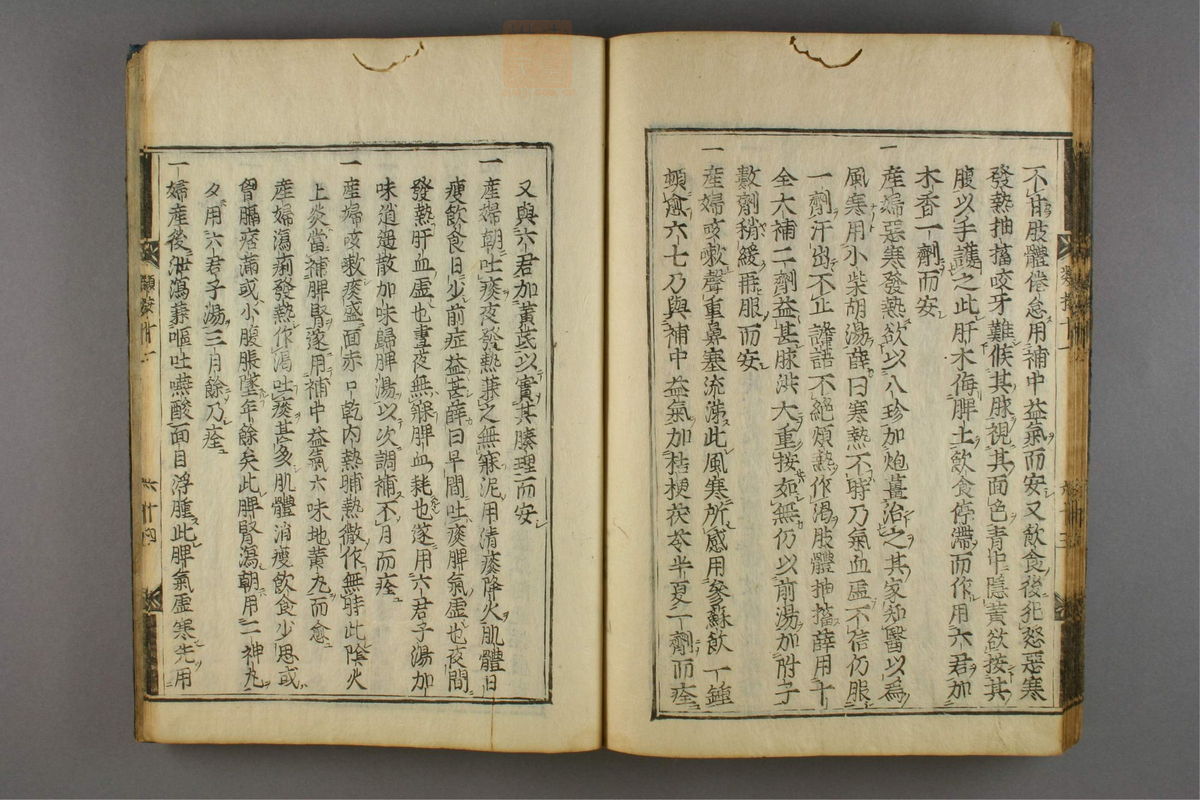 不甘肢體倦怠用補中益氣而安又飲食後犯怒惡寒
發熱抽搐咬牙難候其脉視其面色青中隱黃欲按其
腹以手護之此肝木侮脾土飲食停滯而作用六君加
木香一劑而安
一産婦惡寒發熱欲以八珍加炮薑治之其家知醫以為
風寒用小柴胡湯薛曰寒熱不時乃氣血虛不信仍服
一劑汗出不止譫語不絶煩熱作渴肢體抽搐薛用十
全大補二劑益甚脉洪大重按如無仍以前湯加附子
數劑稍緩再服而安
一産婦咳嗽聲重鼻塞流涕此風寒所感用參蘇飲一鍾
頓愈六七乃與補中益氣加桔梗茯苓半夏一劑而痊
又與六君加黃芪以實其腠理而安
一産婦朝吐痰夜發熱兼之無寐泥用清痰降火肌體日
瘦飲食日少前症益甚薛曰早間吐痰脾氣虛也夜間
發熱肝血虛也晝夜無寐脾血耗也遂用六君子湯加
味逍遥散加味歸脾湯以次調補不月而痊
一産婦咳嗽痰盛面赤口乾内熱晡熱徹作無時此陰火
上炎當補脾腎遂用補中益氣六味地黃丸而愈
産婦瀉痢發熱作渴吐痰甚多肌體消瘦飲食少思或
曾膈痞滿或小腹脹墜年餘矣此脾腎瀉朝用二神丸
夕用六君子湯三月餘乃痊
一婦産後泄瀉兼嘔吐嚥酸面目浮腫此脾氣虛寒先用